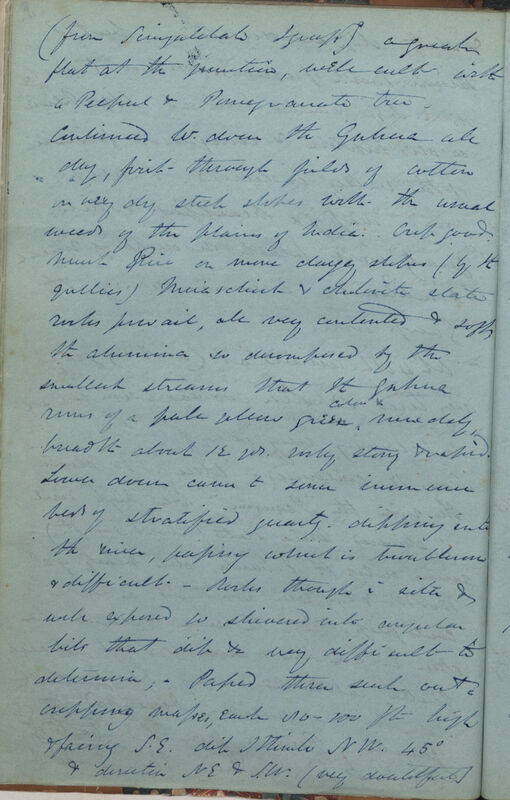 (from Singalelah Spurs?) a great
flat at the junction, with cult with
a Peepul & Pomegranate tree.
Continued W. down the Guhua all
day, first through fields of cotton
on very dry steep slopes with the usual
weeds of the plains of India. Crop good.
Much Rice on more clayey slopes (by the
gullies) Mica schist & chlorite slate
rocks prevail, all very contorted & soft,
the alumina so decomposed by the
smallest streams that the Guhua
runs of a pale yellow green colour & muddy,
breadth about 12 yds. rocky stony & rapid.
Lower down came to some immense
beds of stratified quartz dipping into
the river, passing which is troublesome
& difficult. - Rocks though i situ &
well exposed so shivered into angular
bits that dip &c very difficult to
determine, - Passed three such out=
cropping masses, each 80-100 ft high
& facing S.E. dip I think N.W. 45°
& direction NE & SW. (very doubtful)